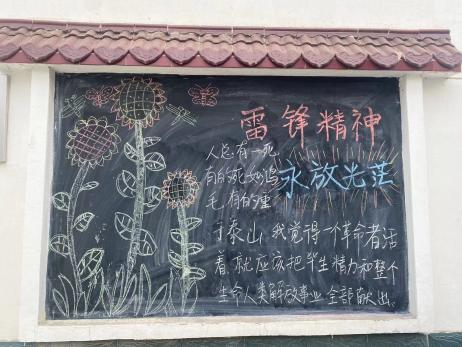 雷锋精神
永放光茫
人总有一死
有的死如鸿
毛 有的重
于泰山 我觉得一个革命者活
着就应该把毕生精力和整个
生命人类解放事业 全部献出.